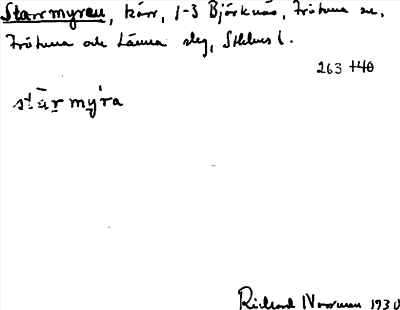 Starrmyren, kärr, 1-3 Björknäs, Frötuna sn,
Frötuna och Länna slg, Sthlms l.
263 440
stārmy̆ra
Richard Norrman 1930